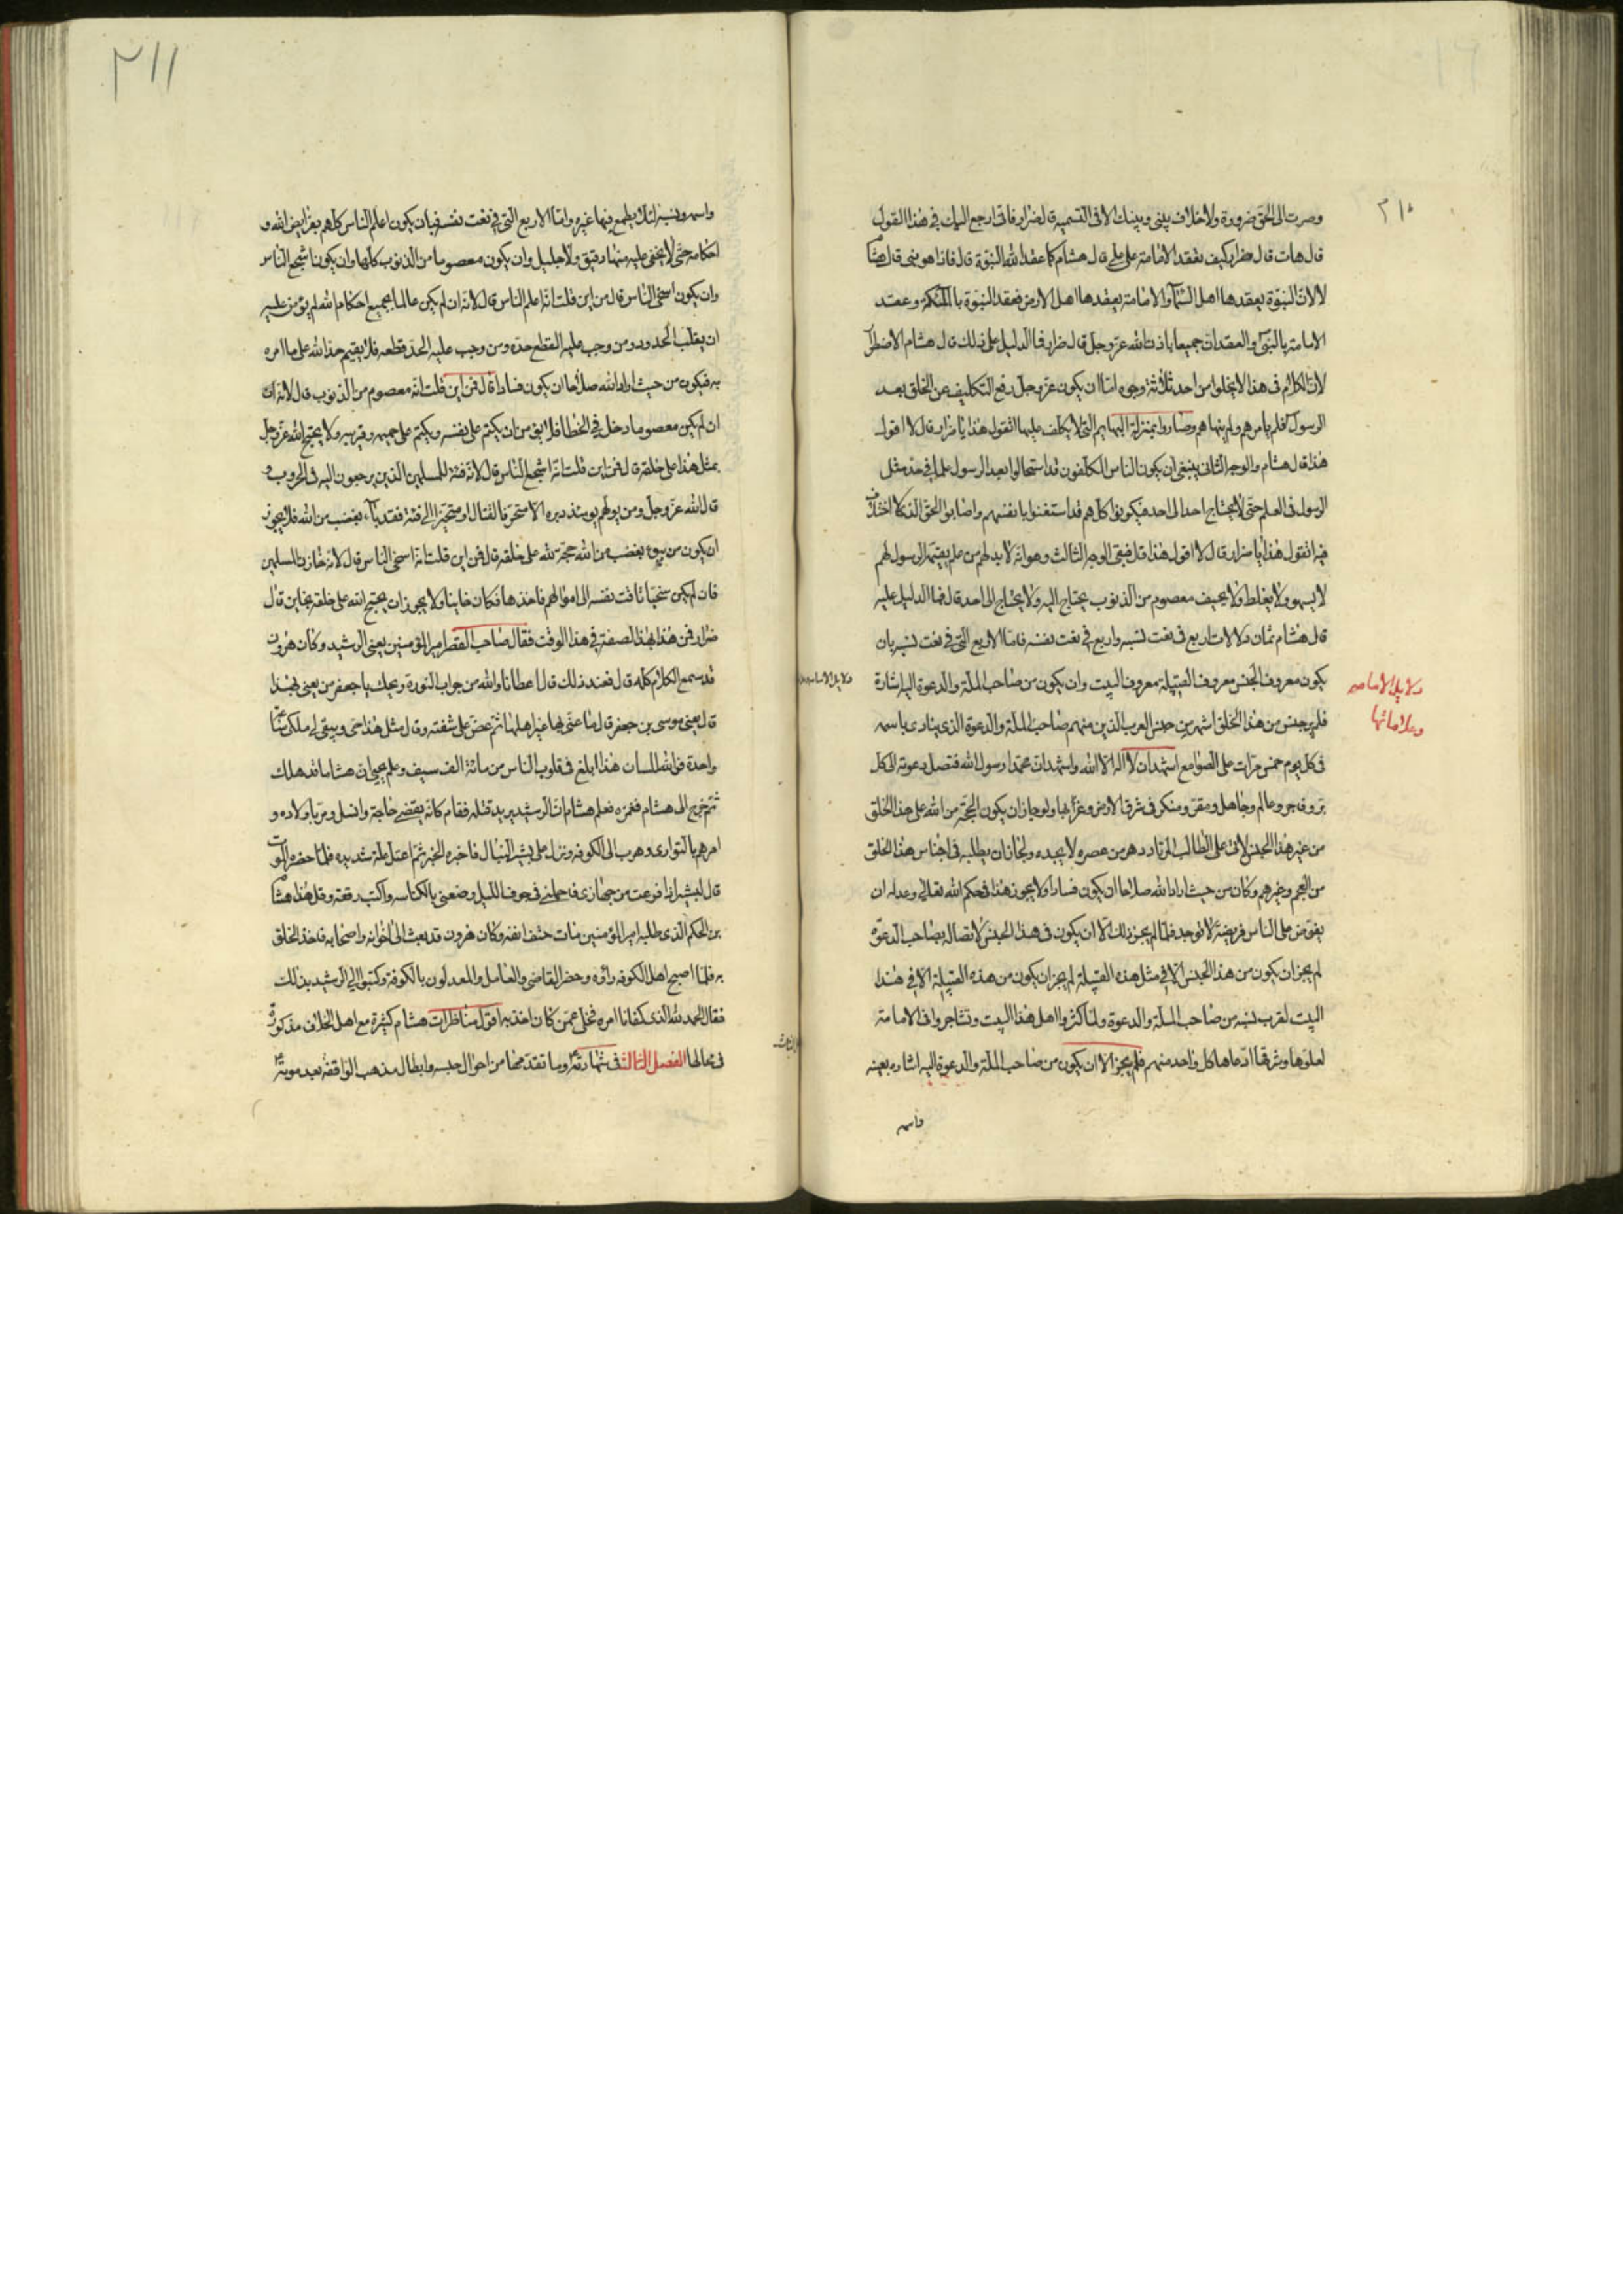 ٢١٠
وصرت الى الحق ضرورة ولا خلاف بيني وبينك الا في التسمية قال ضرار فاني ارجع اليك في هذا القول
قال هات قال ضرار كيف تعقد الامامة على علي قال هشام كما عقد الله النبوة قال فاذا هو نبي قال هشام
لا لان النبوة يعقدها اهل السماء والامامة يعقدها اهل الارض فعقد النبوة بالملائكة وعقد
الامامة بالنبي والعقدان جميعا باذن الله عز وجل قال ضرار فما الدليل على ذلك قال هشام الاضطرار
لان الكلام في هذا لا يخلوا من احد ثلاثة وجوه اما ان يكون عز وجل رفع التكليف عن الخلق بعد
الرسول فلم يامرهم ولم ينهاهم وصاروا بمنزلة البهايم التي لا يكلف عليها اتقول هذا يا ضرار قال لا اقول
هذا قال هشام والوجه الثاني ينبغي ان يكون الناس المكلفون قد استحالوا بعد الرسول علما في حد مثل
الرسول في العلم حتى لا يحتاج احد الى احد فيكونوا كلهم قد استغنوا بانفسهم واصابوا الحق الذي لا اختلاف
فيه اتقول هذا يا ضرار قال لا اقول هذا قال فبقى الوجه الثالث وهو انه لا بد لهم من علم يقيمه الرسول لهم
لا يسهو ولا يغلط ولا يحيف معصوم من الذنوب يحتاج اليه ولا يحتاج الى احد قال فما الدليل عليه
قال هشام ثمان دلالات اربع في نعت نسبه واربع في نعت نفسه فاما الاربع التي في نعت نسبه بان
يكون معروف الجنس معروف القبيلة معروف البيت وان يكون من صاحب الملة والدعوة اليه اشارة
دلايل الامامه
وعلاماتها
فلم ير جنس من هذا الخلق اشهر من جنس العرب الذين منهم صاحب الملة والدعوة الذي ينادى باسمه
في كل يوم خمس مرات على الصوامع اشهد ان لا اله الا الله واشهد ان محمدا رسول الله فتصل دعوته الى كل
بر وفاجر وعالم وجاهل ومقر ومنكر في شرق الارض وغربها ولو جاز ان يكون الحجة من الله على هذا الخلق
من غير هذا الجنس لاتى على الطالب المرتاد دهر من عصره لا يجده ولجاز ان يطلبه في اجناس هذا الخلق
من العجم وغيرهم وكان من حيث اراد الله صلاحا ان يكون فسادا ولا يجوز هذا في حكم الله تعالى وعدله ان
يفرض على الناس فريضة لا توجد فلما لم يجز ذلك الا ان يكون في هذا الجنس لاتصاله بصاحب الدعوة
لم يجز ان يكون من هذا الجنس الا في مثل هذه القبيلة لم يجز ان يكون من هذه القبيلة الا في هذا
البيت لقرب نسبه من صاحب الملة والدعوة ولما كثروا اهل هذا البيت وتشاجروا في الامامة
لعلوها وشرفها ادعاها كل واحد منهم فلم يجز الا ان يكون من صاحب الملة والدعوة اليه اشاره بعينه
واسمه
٢١١
واسمه ونسبه لئلا يطمع فيها غيره واما الاربع التي في نعت نفسه فبان يكون اعلم الناس كلهم بفرايض الله و
احكامه حتى لا يخفى عليه منها دقيق ولا جليل وان يكون معصوما من الذنوب كلها وان يكون اشجع الناس
وان يكون اسخى الناس قال من اين قلت انه اعلم الناس قال لانه ان لم يكن عالما بجميع احكام الله لم يؤمن عليه
ان يقلب الحدود ومن وجب عليه القطع حده ومن وجب عليه الحد قطعه فلا يقيم حدا لله على ما امره
به فيكون من حيث اراد الله صلاحا ان يكون فسادا قال فمن اين قلت انه معصوم من الذنوب قال لانه ان
ان لم يكن معصوما دخل في الخطا فلا يؤمن ان يكتم على نفسه ويكتم على حميمه وقريبه ولا يحتج الله عز وجل
بمثل هذا على خلقه قال فمن اين قلت انه اشجع الناس قال لانه فئة للمسلمين الذين يرجعون اليه في الحروب و
قال الله عز وجل ومن يولهم يومئذ دبره الا متحرفا لقتال او متحيزا الى فئة فقد باء بغضب من الله فلا يجوز
ان يكون من يبوء بغضب من الله حجة لله على خلقه قال فمن اين قلت انه اسخى الناس قال لانه خازن المسلمين
فان لم يكن سخيا تاقت نفسه الى اموالهم فاخذها فكان خاينا ولا يجوز ان يحتج الله على خلقه بخاين قال
ضرار فمن هذا بهذه الصفة في هذا الوقت فقال صاحب القصر امير المؤمنين يعني الرشيد وكان هرون
قد سمع الكلام كله قال فعند ذلك قال اعطانا والله من جراب النورة ويحك يا جعفر من يعني بهذا
قال يعني موسى بن جعفر قال ما عنى بها غير اهلها ثم عض على شفته وقال مثل هذا حي ويبقى لي ملكي ساعة
واحدة فو الله للسان هذا ابلغ في قلوب الناس من مائة الف سيف وعلم يحيى ان هشاما قد هلك
ثم خرج الى هشام فغمزه فعلم هشام ان الرشيد يريد قتله فقام كانه يقضي حاجة وانسل ومر باولاده و
امرهم بالتواري وهرب الى الكوفه ونزل على بشير النبال فاخبره الخبر ثم اعتل علة شديده فلما حضره الموت
قال لبشير اذا فرغت من جهازي فاحملني في جوف الليل وضعني بالكناسه واكتب رقعة وقل هذا هشام
بن الحكم الذي طلبه امير المؤمنين مات حتف انفه وكان هرون قد بعث الى اخوانه واصحابه فاخذ الخلق
به فلما اصبح اهل الكوفه راوه وحضر القاضي والعامل والمعدلون بالكوفة وكتبوا الى الرشيد بذلك
فقال الحمد لله الذي كفانا امره فخلى عمن كان اخذ به اقول مناظرات هشام كثيرة مع اهل الخلاف مذكورة
في محالها الفصل الثالث في شهادته وما تقدمها من احوال حبسه وابطال مذهب الواقفة بعد موته